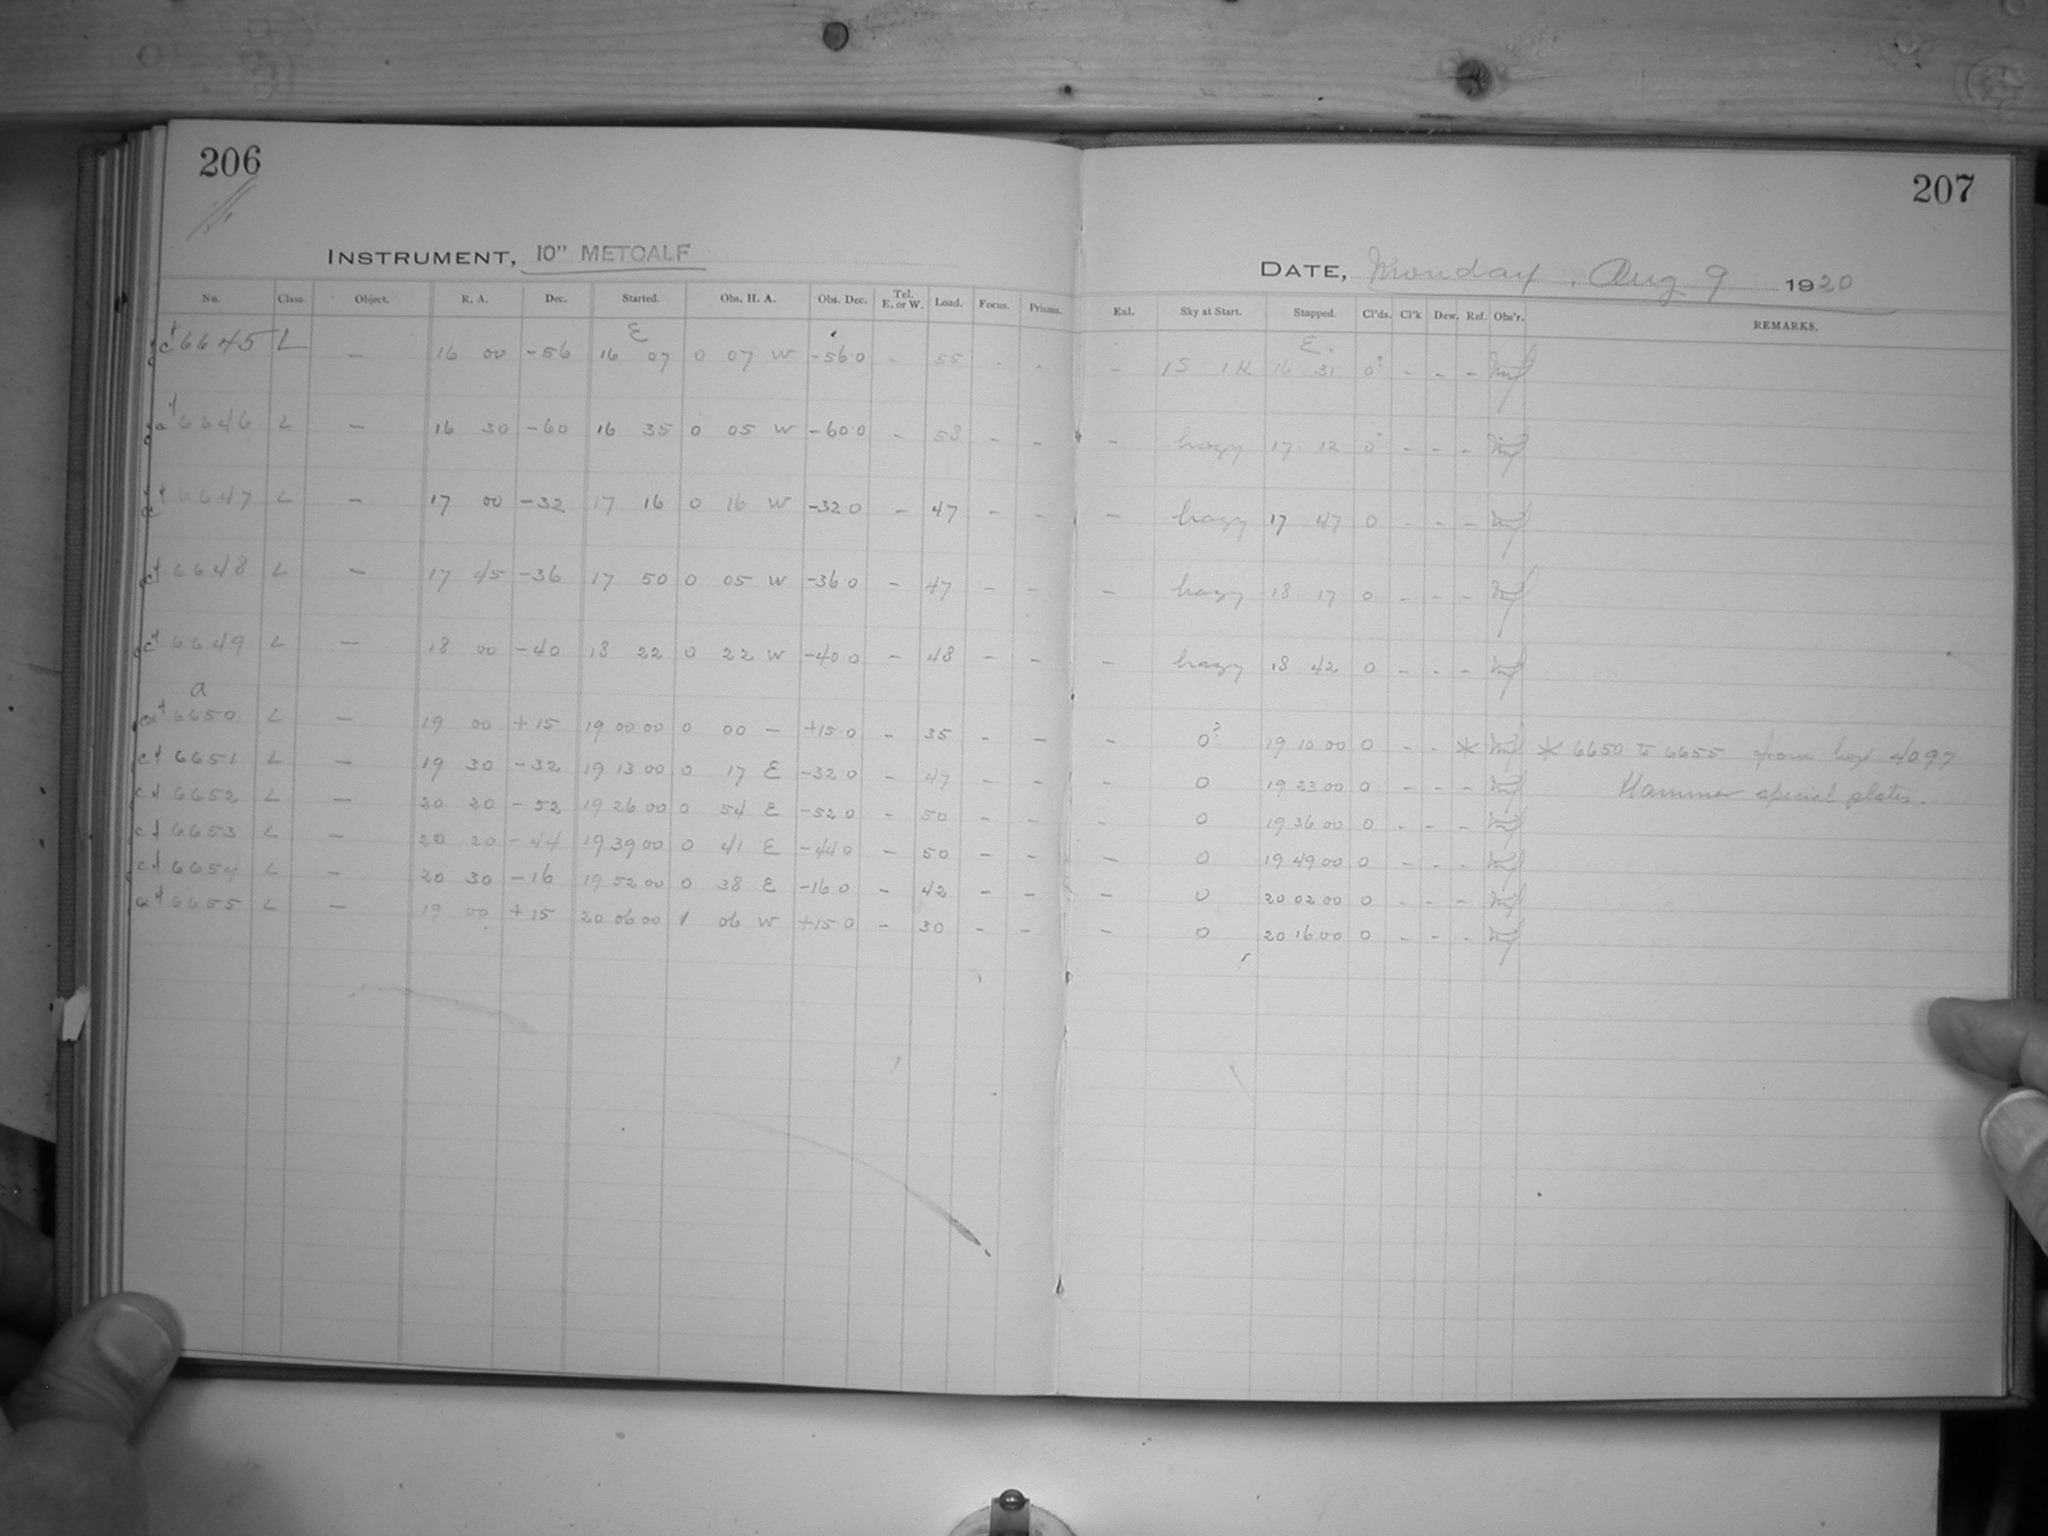 206
207
INSTRUMENT, 10" METCALF
DATE, Monday, Aug 9 1920
No. Class. Object. R. A. Dec. Started. Obs. H. A. Obs. Dec. Tel. E. or W. Load. Focus. Prisms. Eal. Sky at Start. Stopped. Cl'ds. Cl'k Dew. Ref. Obs'r. REMARKS.
E E.
6645 L — 16 00 -56 16 07 0 07 W -56 0 - 55 - - - 1S 1K 16 31 0? - - -
6646 L — 16 30 -60 16 35 0 05 W -60 0 - 58 - - - hazy 17 12 0 - - -
6647 L — 17 00 -32 17 16 0 16 W -32 0 - 47 - - - hazy 17 47 0 - - -
6648 L — 17 45 -36 17 50 0 05 W -36 0 - 47 - - - hazy 18 17 0 - - -
6649 L — 18 00 -40 18 22 0 22 W -40 0 - 48 - - - hazy 18 42 0 - - -
a
6650 L — 19 00 +15 19 00 00 0 00 — +15 0 - 35 - - - 0? 19 10 00 0 - - * * 6650 to 6655 from box 4097
6651 L — 19 30 -32 19 13 00 0 17 E -32 0 - 47 - - - 0 19 23 00 0 - - - Hammer special plates.
6652 L — 20 20 -52 19 26 00 0 54 E -52 0 - 50 - - - 0 19 36 00 0 - - -
6653 L — 20 20 -44 19 39 00 0 41 E -44 0 - 50 - - - 0 19 49 00 0 - - -
6654 L — 20 30 -16 19 52 00 0 38 E -16 0 - 42 - - - 0 20 02 00 0 - - -
6655 L — 19 00 +15 20 06 00 1 06 W +15 0 - 30 - - - 0 20 16 00 0 - - -